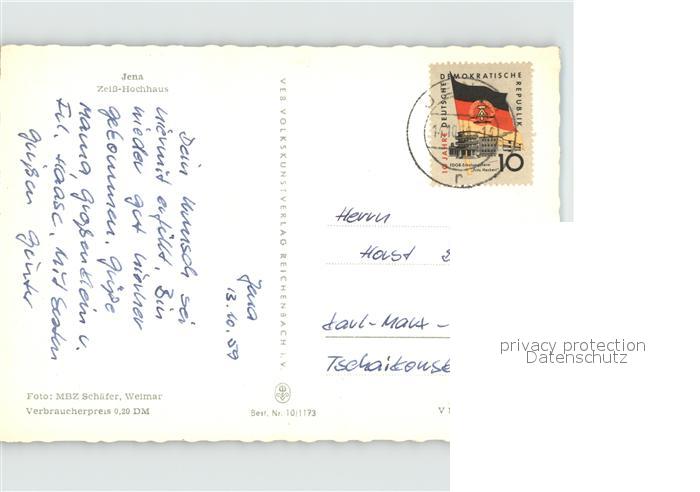 Jena
Zeiß-Hochhaus
Dein Wunsch sei
hiermit erfüllt. Bin
wieder gut hierher
gekommen. Grüße
Mama, Großenklein u.
Frl. Haase. Mit besten
Grüßen Günter
Jena
13.10.59
Foto: MBZ Schäfer, Weimar
Verbraucherpreis 0,20 DM
VEB VOLKSKUNSTVERLAG REICHENBACH I. V.
Best. Nr. 10/1173
V
10 JAHRE DEUTSCHE DEMOKRATISCHE REPUBLIK
FDGB-Erholungsheim
"Fritz Heckert"
10
Herrn
Horst
Karl-Marx-
Tschaikowsk
privacy protection
Datenschutz